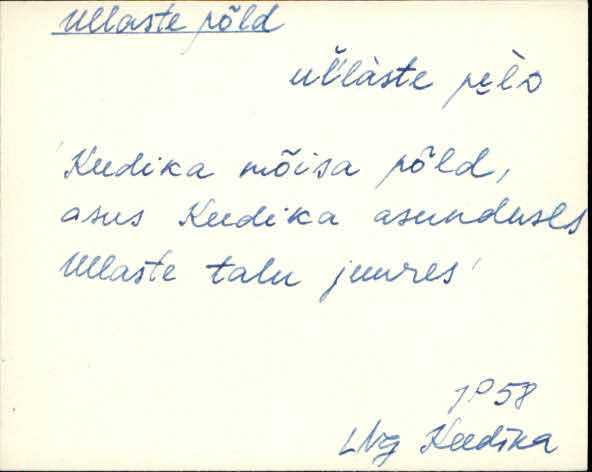 Ullaste põld
ul̆làste pe̮l̀D
'Kudika mõisa põld,
asus Kudika asunduses
Ullaste talu juures'
JP 58
LNg Kudika